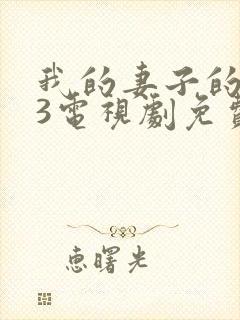 我的妻子的
3電視劇免費
惠曙光